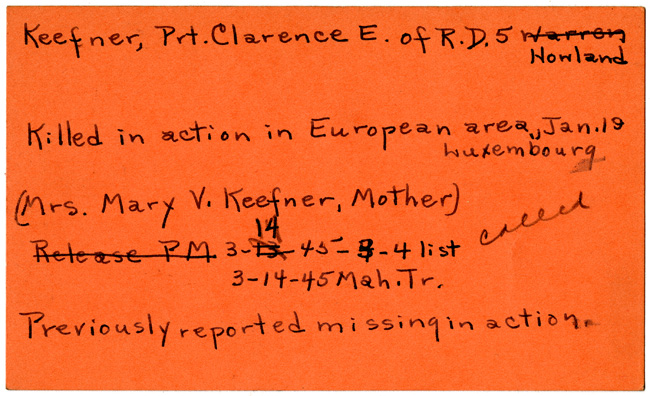 Keefner, Prt. Clarence E. of R.D. 5 Warren
Howland
Killed in action in European area, Jan. 19
Luxembourg
(Mrs. Mary V. Keefner, Mother)
called
14
Release P M 3-13-45- -4 list
3-14-45 Mah. Tr.
Previously reported missing in action.